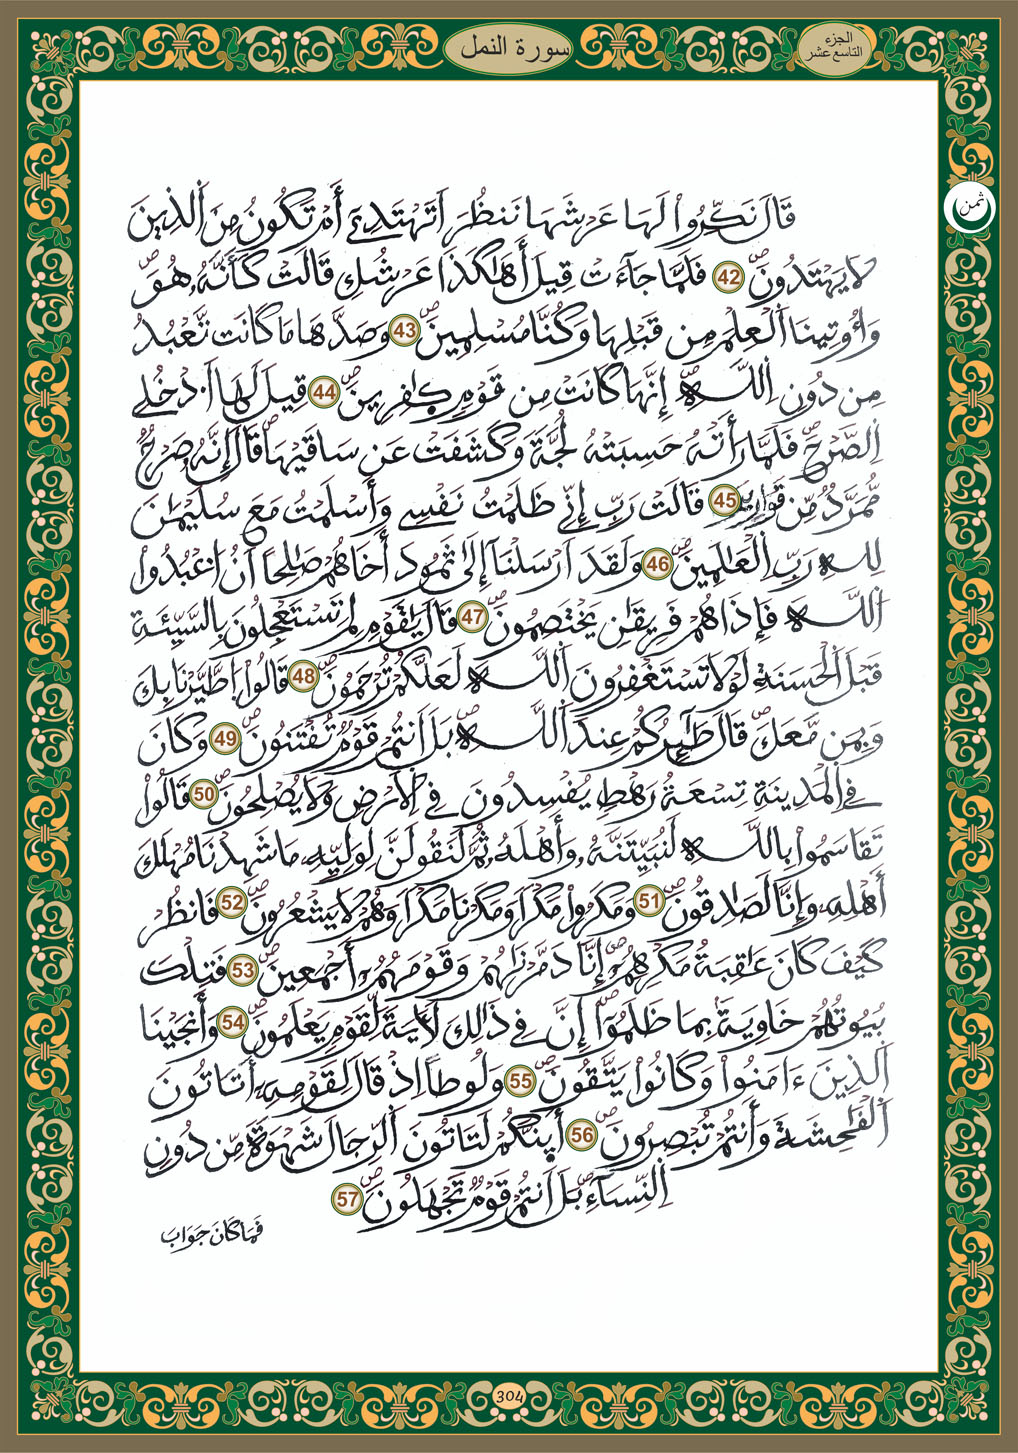 سورة النمل
الجزء
التاسع عشر
ثمن
قَالَ نَكِّرُواْ لَهَا عَرْشَهَا نَنظُرَ اَتَهْتَدِےٓ أَمْ تَكُونُ مِنَ اَلذِينَ
لَا يَهْتَدُونَۖ 42 فَلَمَّا جَآءَتْ قِيلَ أَهَٰكَذَا عَرْشُكِ قَالَتْ كَأَنَّهُۥ هُوَۖ
وَأُوتِينَا اَلْعِلْمَ مِن قَبْلِهَا وَكُنَّا مُسْلِمِينَۖ 43 وَصَدَّهَا مَا كَانَت تَّعْبُدُ
مِن دُونِ اِللَّهِۖ إِنَّهَا كَانَتْ مِن قَوْمٖ كٰفِرِينَۖ 44 قِيلَ لَهَا اَ۟دْخُلِے
اِلصَّرْحَۖ فَلَمَّا رَأَتْهُ حَسِبَتْهُ لُجَّةٗ وَكَشَفَتْ عَن سَاقَيْهَاۖ قَالَ إِنَّهُۥ صَرْحٞ
مُّمَرَّدٞ مِّن قَوَارِيرَۖ 45 قَالَتْ رَبِّ إِنِّے ظَلَمْتُ نَفْسِے وَأَسْلَمْتُ مَعَ سُلَيْمَٰنَ
لِلهِ رَبِّ اِلْعَٰلَمِينَۖ 46 وَلَقَدَ اَرْسَلْنَآ إِلَىٰ ثَمُودَ أَخَاهُمْ صَٰلِحاً اَنُ اُ۟عْبُدُواْ
اُللَّهَۖ فَإِذَا هُمْ فَرِيقَٰنِ يَخْتَصِمُونَۖ 47 قَالَ يَٰقَوْمِ لِمَ تَسْتَعْجِلُونَ بِالسَّيِّئَةِ
قَبْلَ اَلْحَسَنَةِۖ لَوْلَا تَسْتَغْفِرُونَ اَللَّهَ لَعَلَّكُمْ تُرْحَمُونَۖ 48 قَالُواْ اُ۪طَّيَّرْنَا بِكَ
وَبِمَن مَّعَكَۖ قَالَ طَٰٓئِرُكُمْ عِندَ اَللَّهِۖ بَلَ اَنتُمْ قَوْمٞ تُفْتَنُونَۖ 49 وَكَانَ
فِے اِلْمَدِينَةِ تِسْعَةُ رَهْطٖ يُفْسِدُونَ فِے اِلَارْضِ وَلَا يُصْلِحُونَۖ 50 قَالُواْ
تَقَاسَمُواْ بِاللَّهِ لَنُبَيِّتَنَّهُۥ وَأَهْلَهُۥ ثُمَّ لَنَقُولَنَّ لِوَلِيِّهِۦ مَا شَهِدْنَا مُهْلَكَ
أَهْلِهِۦ وَإِنَّا لَصَٰدِقُونَۖ 51 وَمَكَرُواْ مَكْراٗ وَمَكَرْنَا مَكْراٗ وَهُمْ لَا يَشْعُرُونَۖ 52 فَانظُرْ
كَيْفَ كَانَ عَٰقِبَةُ مَكْرِهِمُۥٓۖ إِنَّا دَمَّرْنَٰهُمْ وَقَوْمَهُمُۥٓ أَجْمَعِينَۖ 53 فَتِلْكَ
بُيُوتُهُمْ خَاوِيَةَۢ بِمَا ظَلَمُوٓاْۖ إِنَّ فِے ذَٰلِكَ لَأٓيَةٗ لِّقَوْمٖ يَعْلَمُونَۖ 54 وَأَنجَيْنَا
اَلذِينَ ءَامَنُواْ وَكَانُواْ يَتَّقُونَۖ 55 وَلُوطاً اِذْ قَالَ لِقَوْمِهِۦٓ أَتَاتُونَ
اَلْفَٰحِشَةَ وَأَنتُمْ تُبْصِرُونَۖ 56 أَئِنَّكُمْ لَتَاتُونَ اَلرِّجَالَ شَهْوَةٗ مِّن دُونِ
اِلنِّسَآءِۖ بَلَ اَنتُمْ قَوْمٞ تَجْهَلُونَۖ 57
فَمَا كَانَ جَوَابَ
304